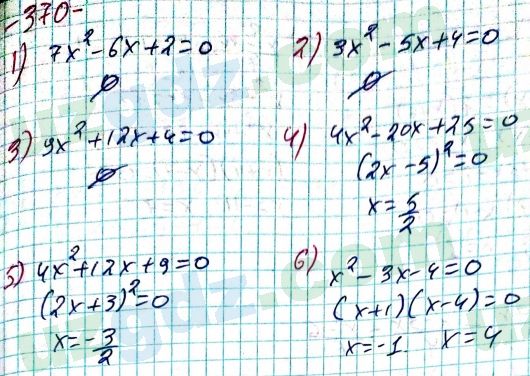 -370-
1) 7x² - 6x + 2 = 0
∅
2) 3x² - 5x + 4 = 0
∅
3) 9x² + 12x + 4 = 0
∅
4) 4x² - 20x + 25 = 0
(2x - 5)² = 0
x = 5/2
5) 4x² + 12x + 9 = 0
(2x + 3)² = 0
x = - 3/2
6) x² - 3x - 4 = 0
(x + 1)(x - 4) = 0
x = -1. x = 4